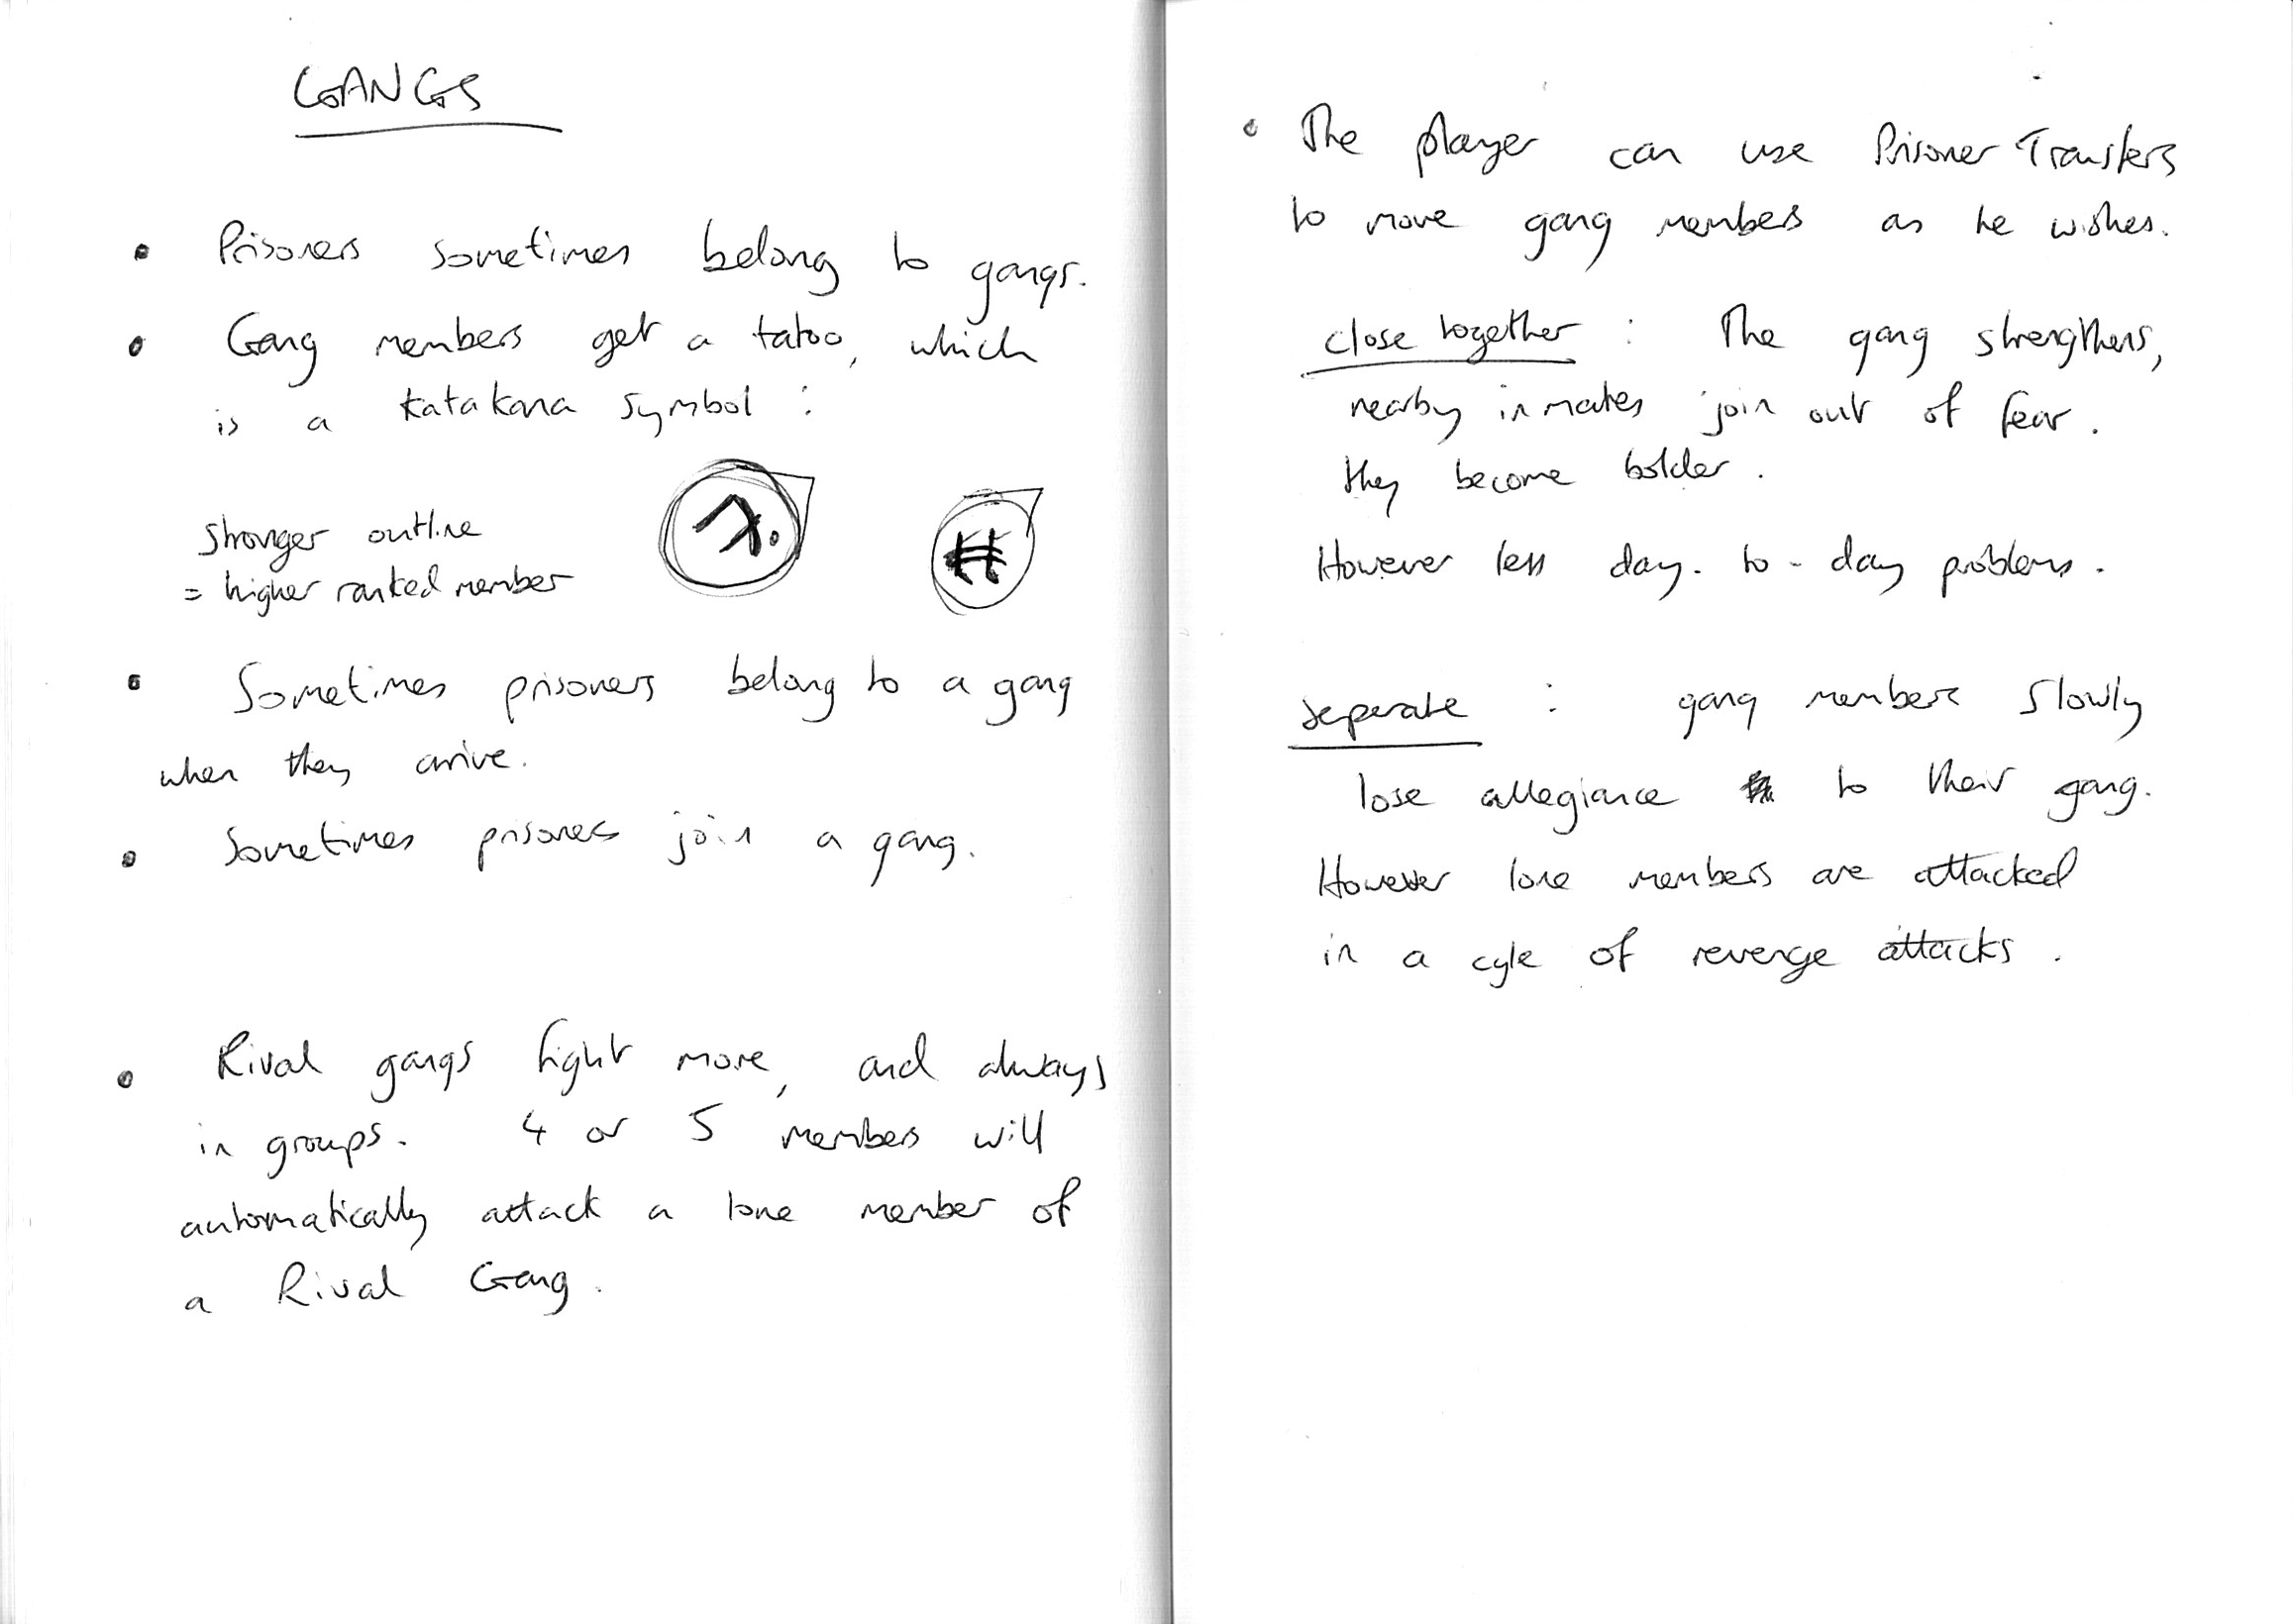 GANGS
• Prisoners sometimes belong to gangs.
• Gang members get a tatoo, which
is a katakana symbol :
stronger outline
= higher ranked member
• Sometimes prisoners belong to a gang
when they arrive.
• Sometimes prisoners join a gang.
• Rival gangs fight more, and always
in groups. 4 or 5 members will
automatically attack a lone member of
a Rival Gang.
• The player can use Prisoner Transfers
to move gang members as he wishes.
close together : The gang strengthens,
nearby inmates join out of fear.
they become bolder.
However less day-to-day problems.
seperate : gang members slowly
lose allegiance to their gang.
However lone members are attacked
in a cyle of revenge attacks.